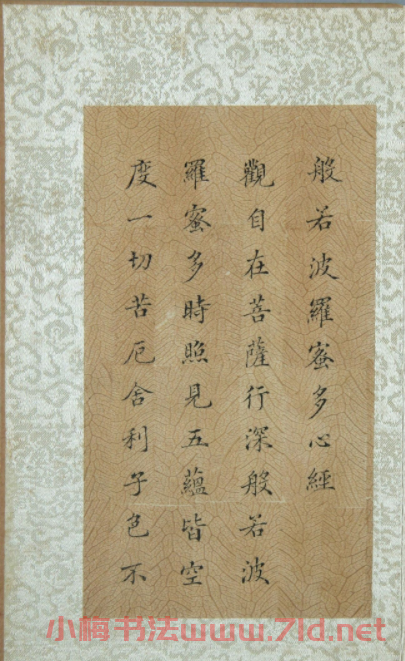 般若波羅蜜多心經
觀自在菩薩行深般若波
羅蜜多時照見五蘊皆空
度一切苦厄舍利子色不
小梅书法www.7ld.net